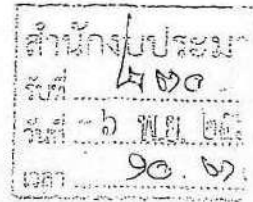 สำนักงบประมา
รับที่ ๒๗๐
วันที่ -๖ พ.ย. ๒๕
เวลา ๑๐.๓